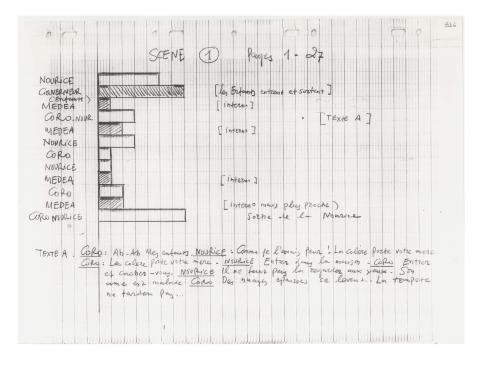 SCENE 1 Pages 1 - 27
NOURICE
GOUVERNEUR [les Enfants entrent et sortent]
MEDEA [interno]
CORO, NOUR [TEXTE A]
MEDEA [interno]
NOURICE
CORO
NOURICE
MEDEA [interno]
CORO
MEDEA [interno mais plus proche)
CORO NOURICE Sortie de la Nourice
TEXTE A : CORO: Ah. Ah Mes enfants. NOURICE : Comme je l'avais peur ! La colère porte votre mère
CORO: La colère porte votre mère. NOURICE Entrez dans la maison. CORO Entrez
et cachez-vous. NOURICE Il ne faut pas la regarder aux yeux. Son
ame est malade CORO Des nuages épaisses se lèvent. La tempête
ne tardera pas...